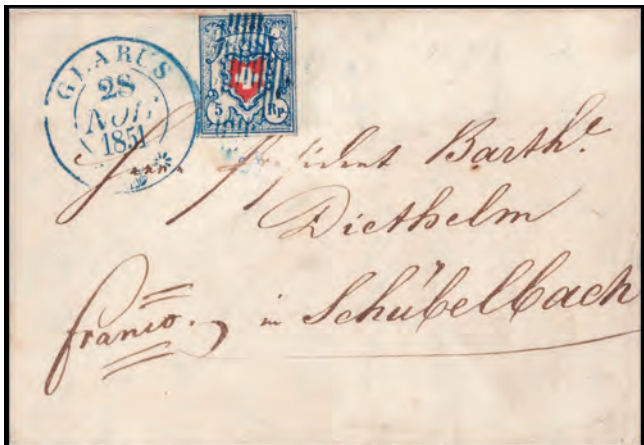 GLARUS
28
NOV
1851
5 Rp.
Herrn Präsident Barth.
Diethelm
franco. in Schübelbach